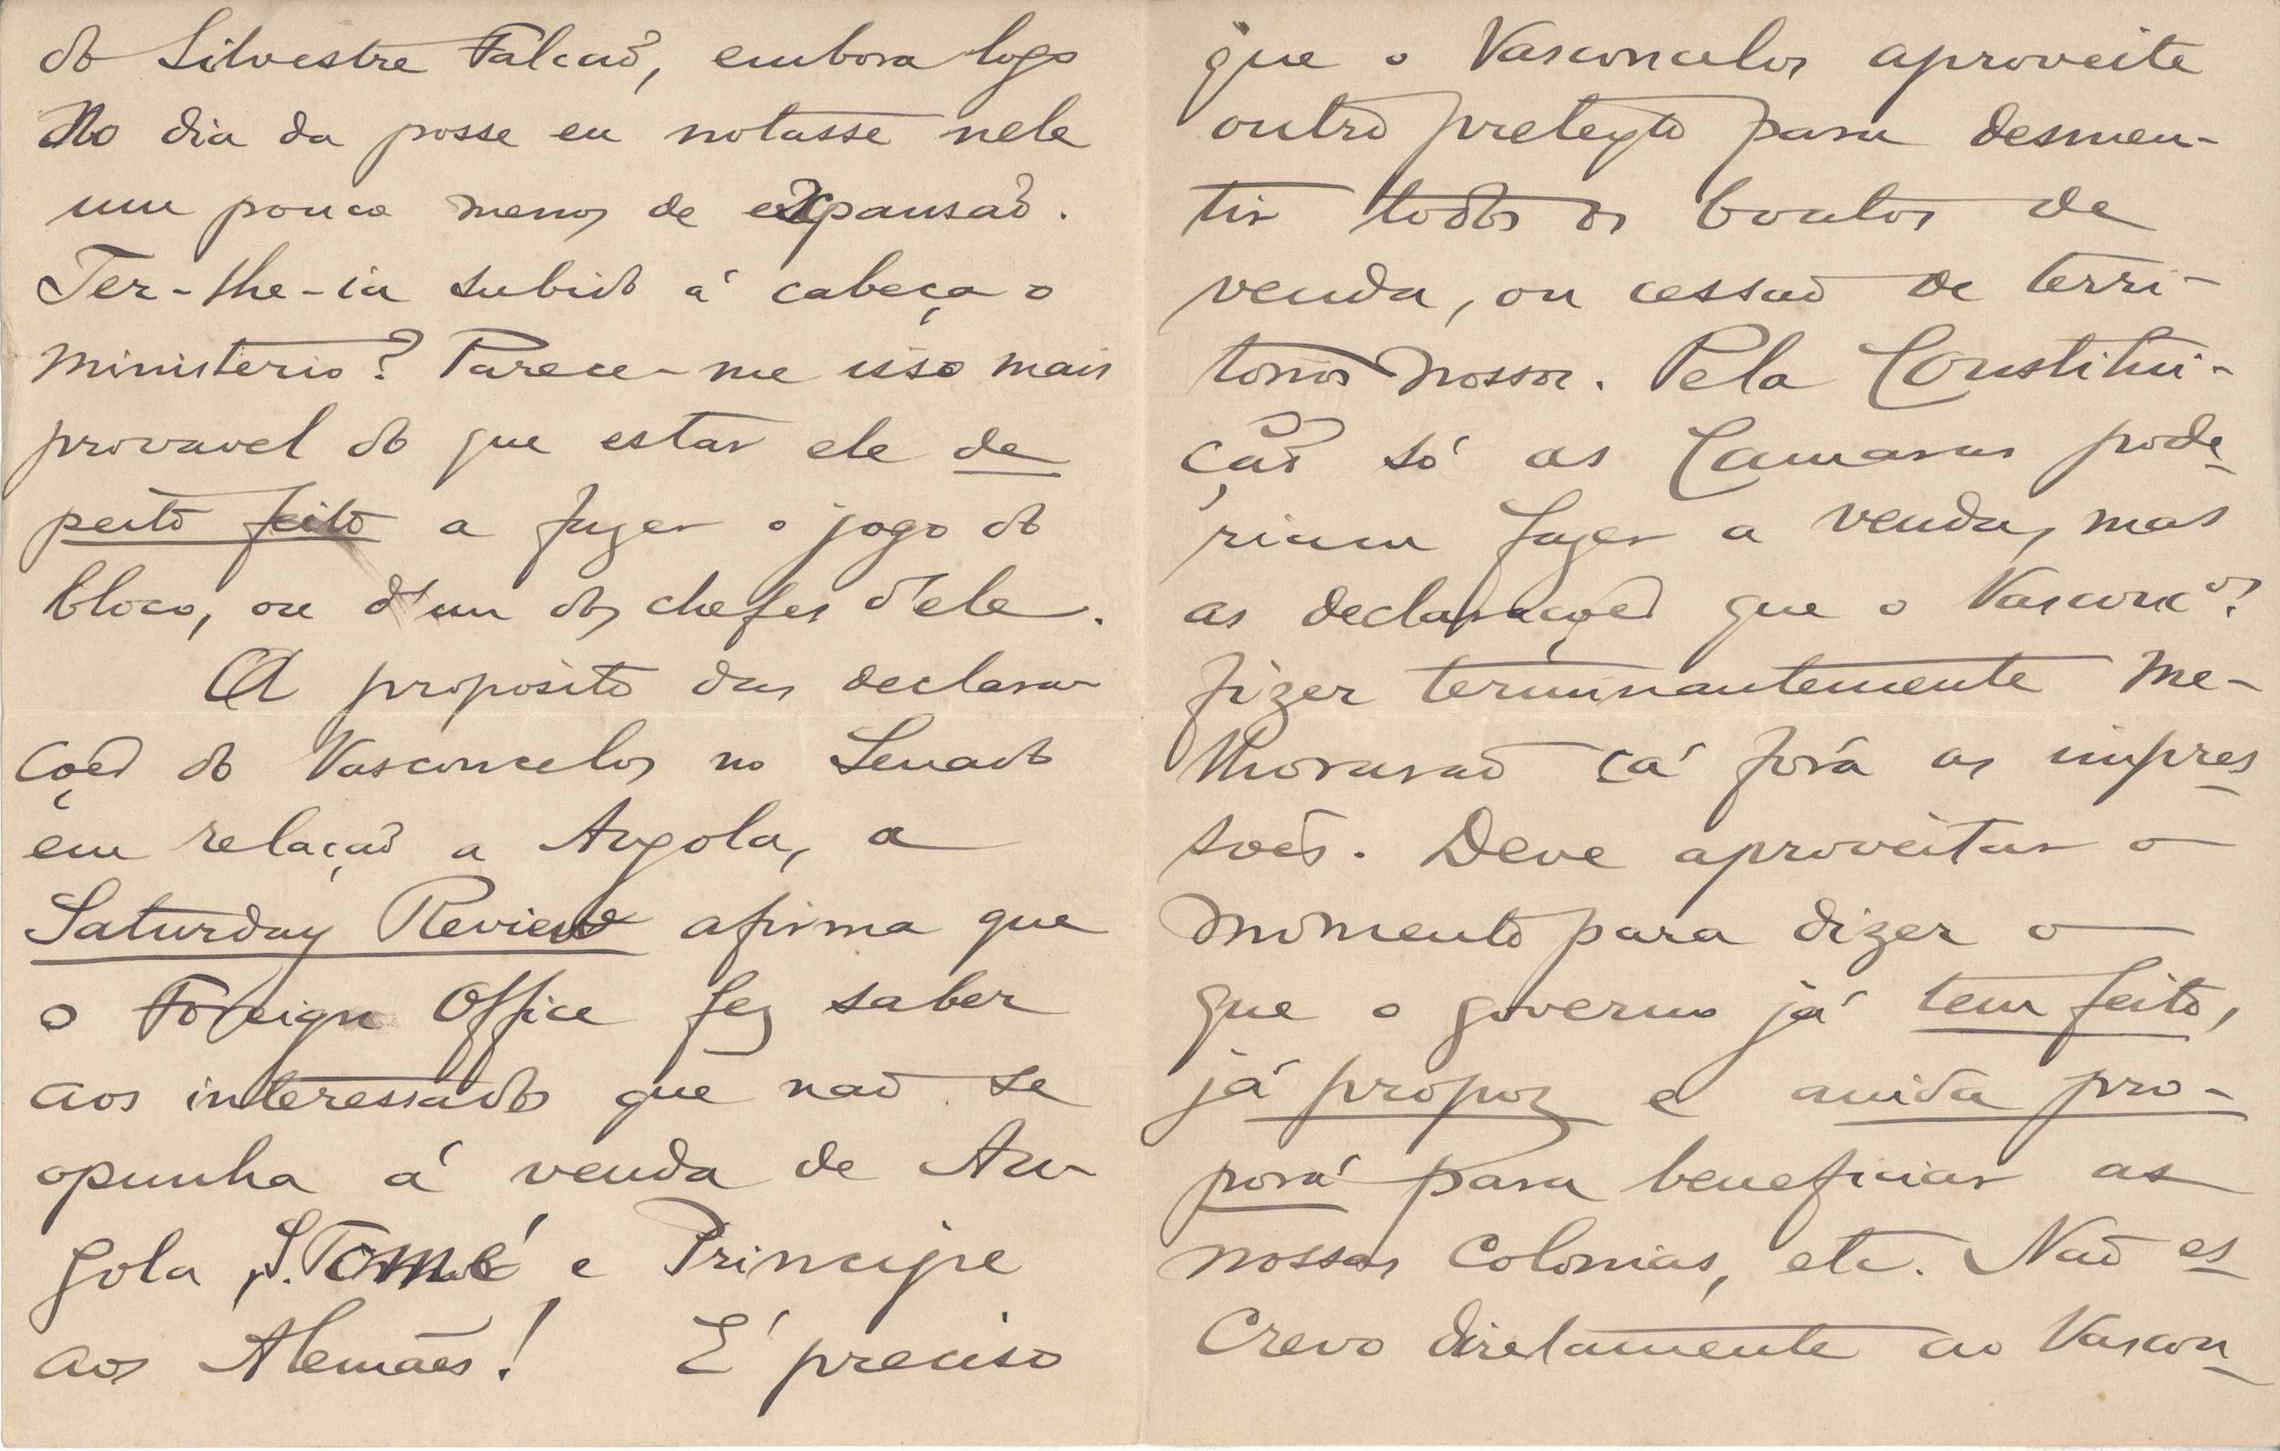 do Silvestre Falcão, embora logo
no dia da posse eu notasse nele
um pouco menos de expansão.
Ter-lhe-ia subido á cabeça o
ministerio? Parece-me isso mais
provavel do que estar ele de
peito feito a fazer o jogo do
bloco, ou d'um dos chefes d'ele.
A proposito das declara-
ções do Vasconcelos no Senado
em relação a Angola, a
Saturday Review afirma que
o Foreign Office fez saber
aos interessados que não se
opunha á venda de An-
gola, S. Tomé e Principe
aos Alemães! É preciso
que o Vasconcelos aproveite
outro pretexto para desmen-
tir todos os boatos de
venda, ou cessão de terri-
torios nossos. Pela Constitui-
ção só as Camaras pode-
riam fazer a venda, mas
as declarações que o Vasconc.os
fizer terminantemente me-
lhorarão cá fóra as impres-
sões. Deve aproveitar o
momento para dizer o
que o governo já tem feito,
já propoz e ainda pro-
porá para beneficiar as
nossas Colonias, etc. Não es-
crevo diretamente ao Vascon-